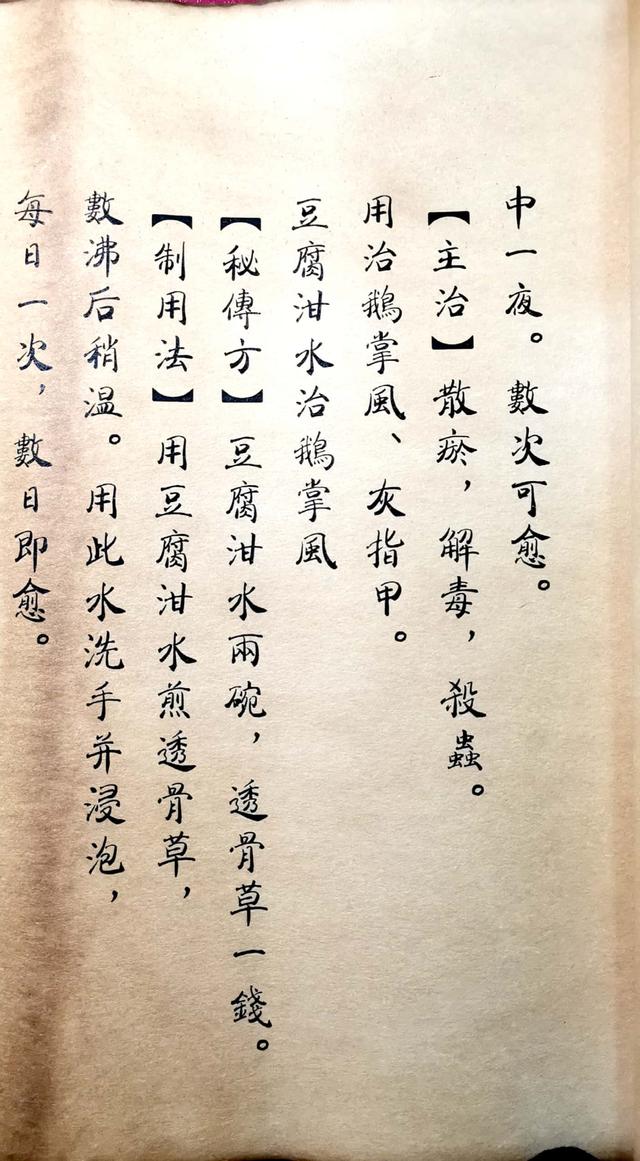 中一夜。數次可愈。
【主治】散瘀，解毒，殺蟲。
用治鵝掌風、灰指甲。
豆腐泔水治鵝掌風
【秘傳方】豆腐泔水兩碗，透骨草一錢。
【制用法】用豆腐泔水煎透骨草，
數沸后稍溫。用此水洗手并浸泡，
每日一次，數日即愈。